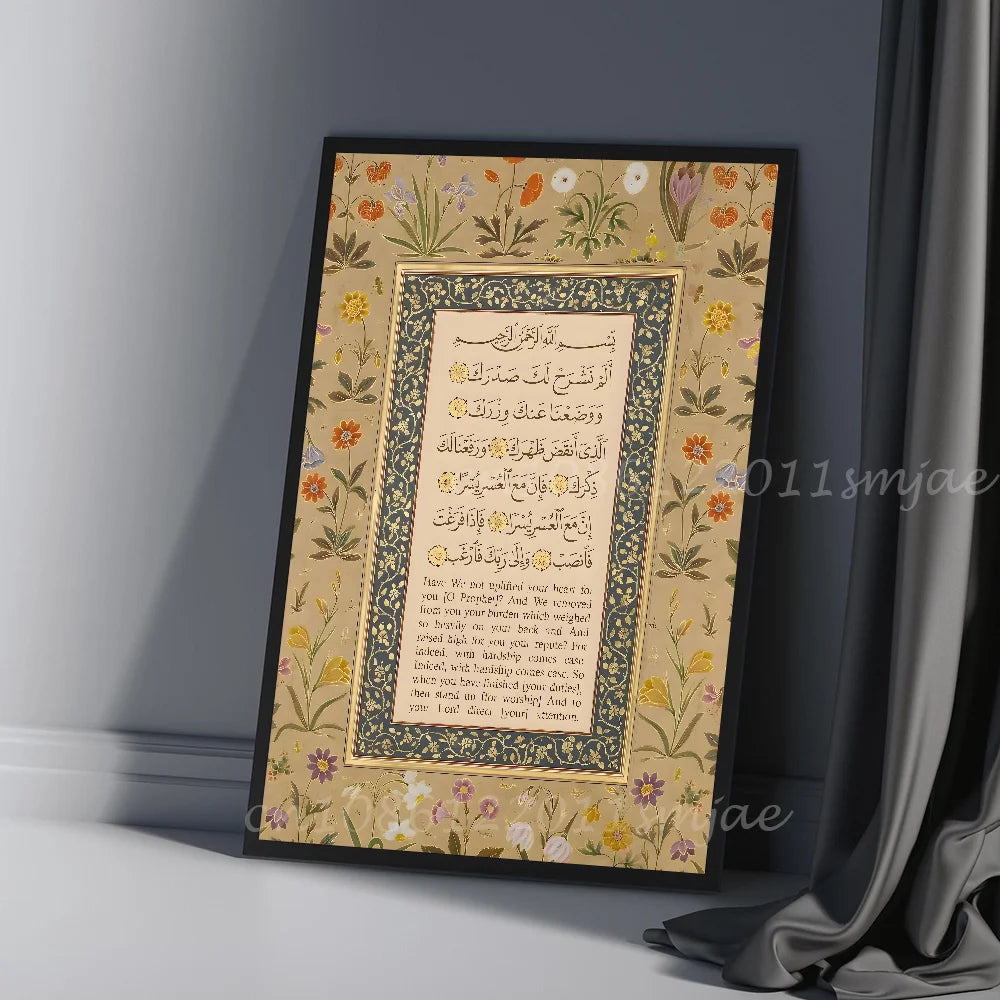 بِسْمِ ٱللَّهِ ٱلرَّحْمَٰنِ ٱلرَّحِيمِ
أَلَمْ نَشْرَحْ لَكَ صَدْرَكَ
وَوَضَعْنَا عَنكَ وِزْرَكَ
ٱلَّذِىٓ أَنقَضَ ظَهْرَكَ وَرَفَعْنَا لَكَ
ذِكْرَكَ فَإِنَّ مَعَ ٱلْعُسْرِ يُسْرًا
إِنَّ مَعَ ٱلْعُسْرِ يُسْرًا فَإِذَا فَرَغْتَ
فَٱنصَبْ وَإِلَىٰ رَبِّكَ فَٱرْغَب
Have We not uplifted your heart for
you [O Prophet]? And We removed
from you your burden which weighed
so heavily on your back and And
raised high for you your repute? For
indeed, with hardship comes ease.
Indeed, with hardship comes ease. So
when you have finished [your duties],
then stand up [for worship] And to
your Lord direct [your] attention.
2011smjae
cn1986122011smjae